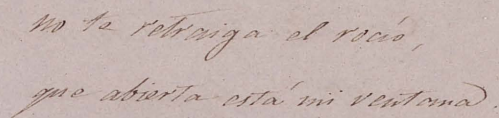 no te retraiga el rocío,
que abierta está mi ventana.